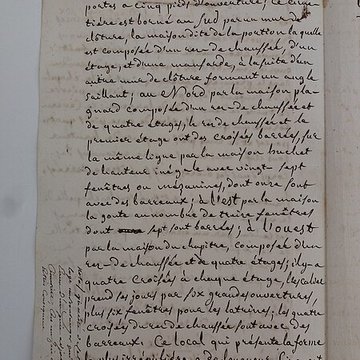 portes a cinq pieds d'ouvertures, ce cime-
tière est borné au Sud par un mur de
clôture, la maison dite de la portion la quelle
est composée d'un rez-de chaussée, d'un
étage, et d'une mansarde, à la suite d'un
autre mur de clôture formant un angle
saillant; au Nord par la maison plan-
gnard composée d'un rez-de chaussée et
de quatre étages, le rez-de chaussée et le
premier étage ont des croisées barrées, sur
la même ligne par la maison huchet
de hauteur inégale avec vingt sept
fenêtres ou mezanines, dont onze sont
avec des barreaux; à l'est par la maison
la goute au nombre de treize fenêtres
dont sept sont barrées; à l'ouest
par la maison du chapitre, composée d'un
rez-de chaussée et de quatre étages; il y a
quatre croisées à chaque étage, l'escalier
prend ses jours par six grandes ouvertures,
plus six fenêtres pour les latrines; les quatre
croisées du rez-de chaussée sont avec des
barreaux. Ce local qui présente la forme